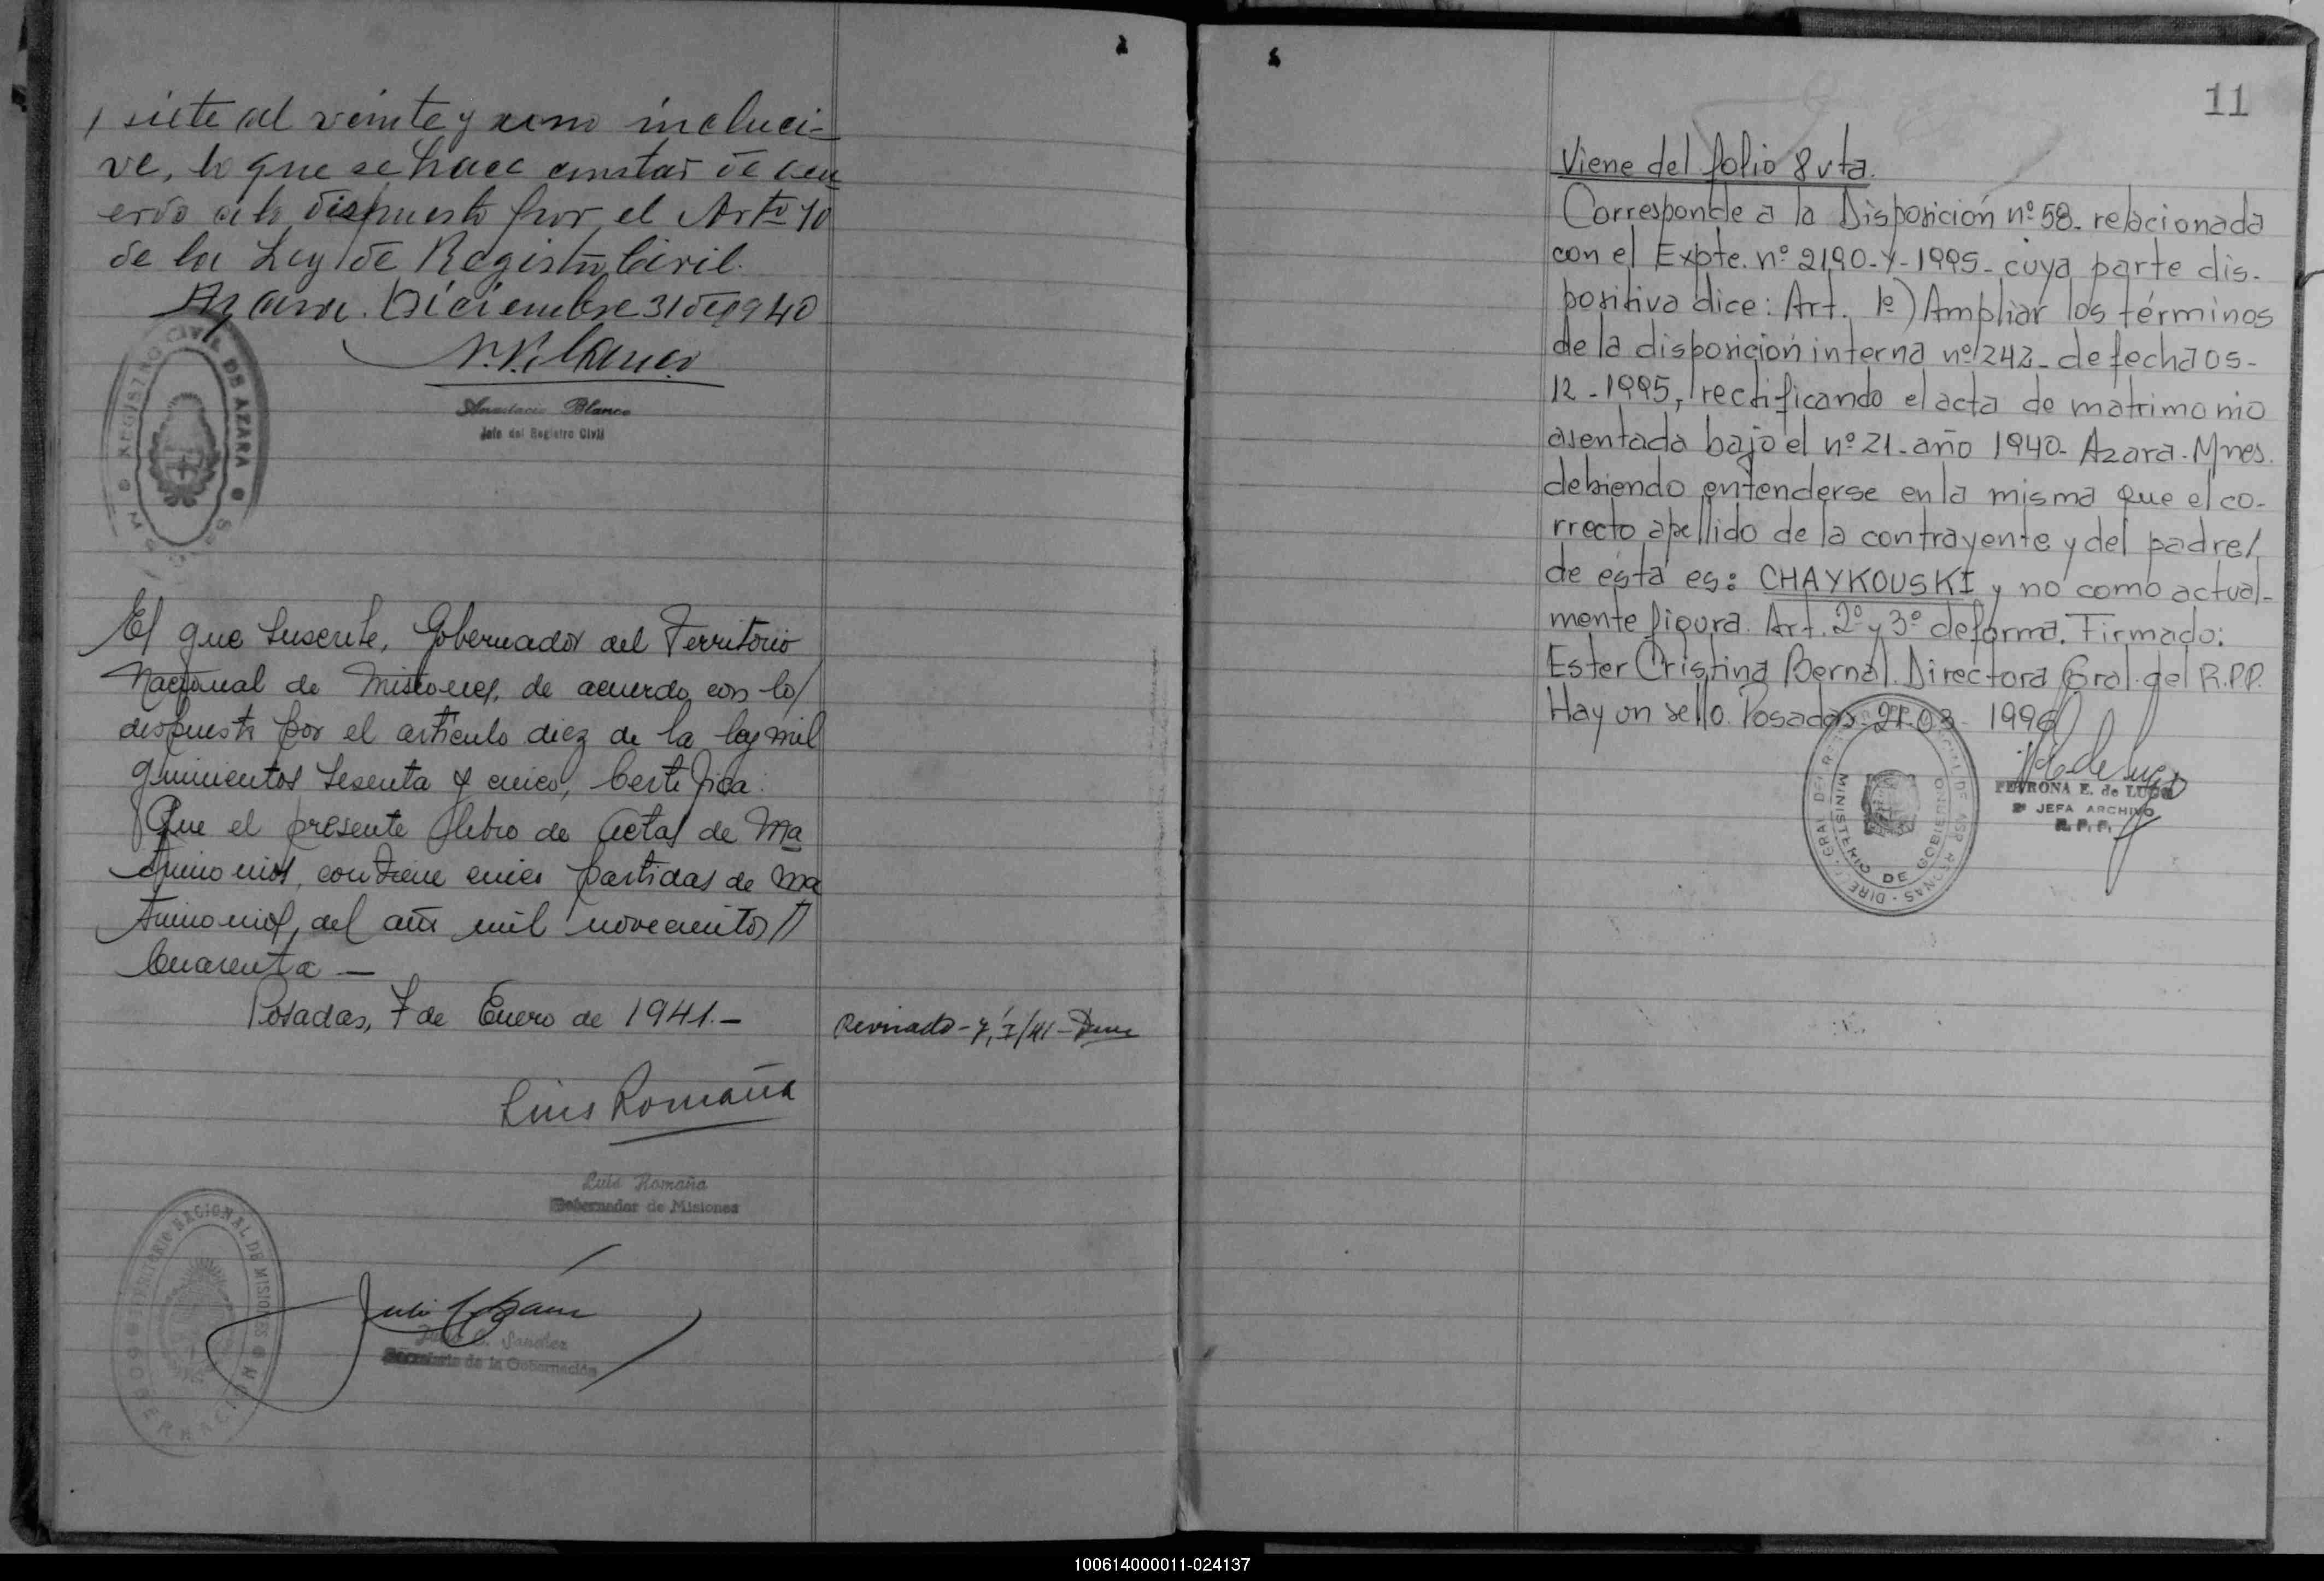 siete al veinte y uno incluci-
ve, lo que se hace constar de acu
erdo a lo dispuesto por el Arto 10
de la Ley de Registro Civil.
Azara. Diciembre 31 de 1940
Anastacio Blanco
Jefe del Registro Civil
REGISTRO CIVIL DE AZARA
El que suscrite, Gobernador del Territorio
Nacional de Misiones, de acuerdo con lo/
dispuesto por el artículo diez de la ley mil
quinientos sesenta y cinco, Certifica:
Que el presente libro de Actas de Ma
trimonios, contiene cinco partidas de ma
trimonios, del año mil novecientos //
Cuarenta —
Posadas, 7 de Enero de 1941.—
Revisado - 7, I/41 -
Luis Romaña
Luis Romaña
Gobernador de Misiones
TERRITORIO NACIONAL DE MISIONES
GOBERNACION
Secretario de la Gobernación
11
Viene del folio 8 vta.
Corresponde a la Disposición nº 58. relacionada
con el Expte. nº 2190-Y-1995- cuya parte dis-
positiva dice: Art. 1º) Ampliar los términos
de la disposición interna nº 243- de fecha 05-
12-1995, rectificando el acta de matrimonio
asentada bajo el nº 21- año 1940- Azara- Mnes.
debiendo entenderse en la misma que el co-
rrecto apellido de la contrayente y del padre/
de ésta es: CHAYKOUSKI y no como actual-
mente figura. Art. 2º y 3º de forma. Firmado:
Ester Cristina Bernal. Directora Gral. del R.P.P.
Hay un sello. Posadas 21-03-1996
PETRONA E. de LUGO
2ª JEFA ARCHIVO
R. P. P.
MINISTERIO DE GOBIERNO
100614000011-024137